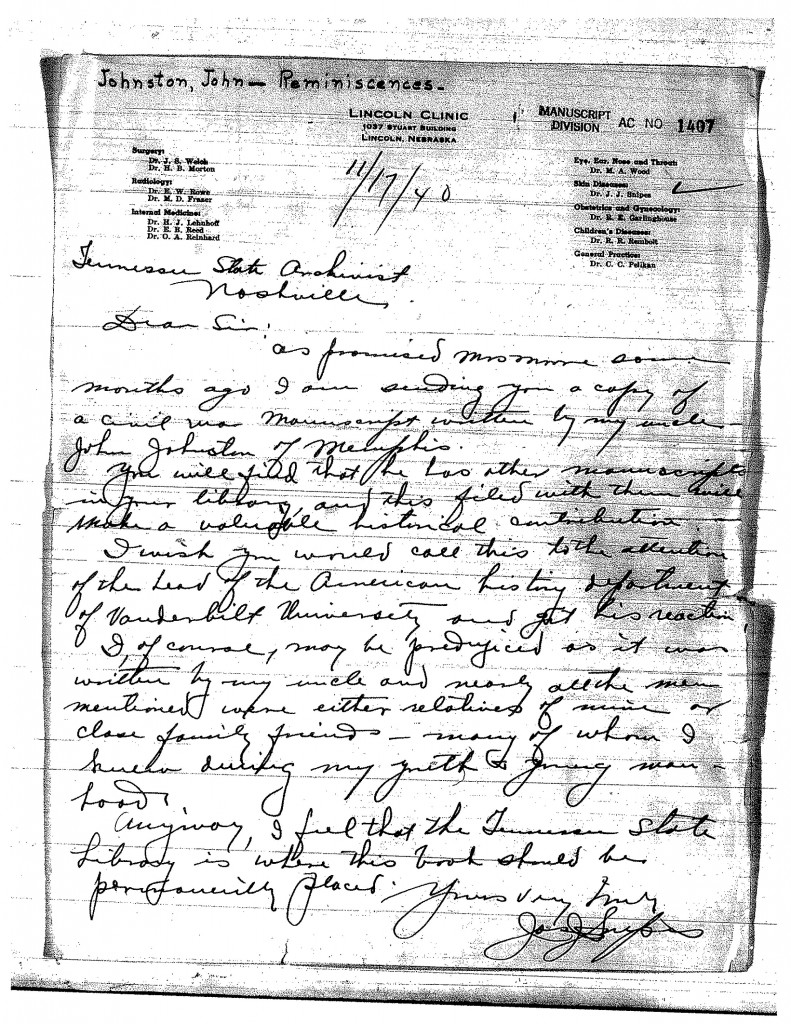 Johnston, John — Reminiscences.
LINCOLN CLINIC
1037 STUART BUILDING
LINCOLN, NEBRASKA
MANUSCRIPT DIVISION AC NO 1407
Surgery:
Dr. J. S. Welch
Dr. H. B. Morton
Radiology:
Dr. E. W. Rowe
Dr. M. D. Frazer
Internal Medicine:
Dr. H. J. Lehnhoff
Dr. E. B. Reed
Dr. O. A. Reinhard
Eye, Ear, Nose and Throat:
Dr. M. A. Wood
Skin Diseases:
Dr. J. J. Snipes
Obstetrics and Gynecology:
Dr. R. E. Garlinghouse
Children's Diseases:
Dr. R. R. Rembolt
General Practice:
Dr. C. C. Pelikan
11/17/40
Tennessee State Archivist
Nashville,
Dear Sir:
as promised Mrs Moore some
months ago I am sending you a copy of
a civil war manuscript written by my uncle
John Johnston of Memphis.
You will find that he has other manuscripts
in your library, and this filed with them will
make a valuable historical contribution.
I wish you would call this to the attention
of the head of the American history department
of Vanderbilt University and get his reaction.
I, of course, may be predujiced as it was
written by my uncle and nearly all the men
mentioned were either relatives of mine or
close family friends – many of whom I
knew during my youth & young man-
hood.
Anyway, I feel that the Tennessee State
Library is where this book should be
permanently placed. Yours very truly
Jas J Snipes